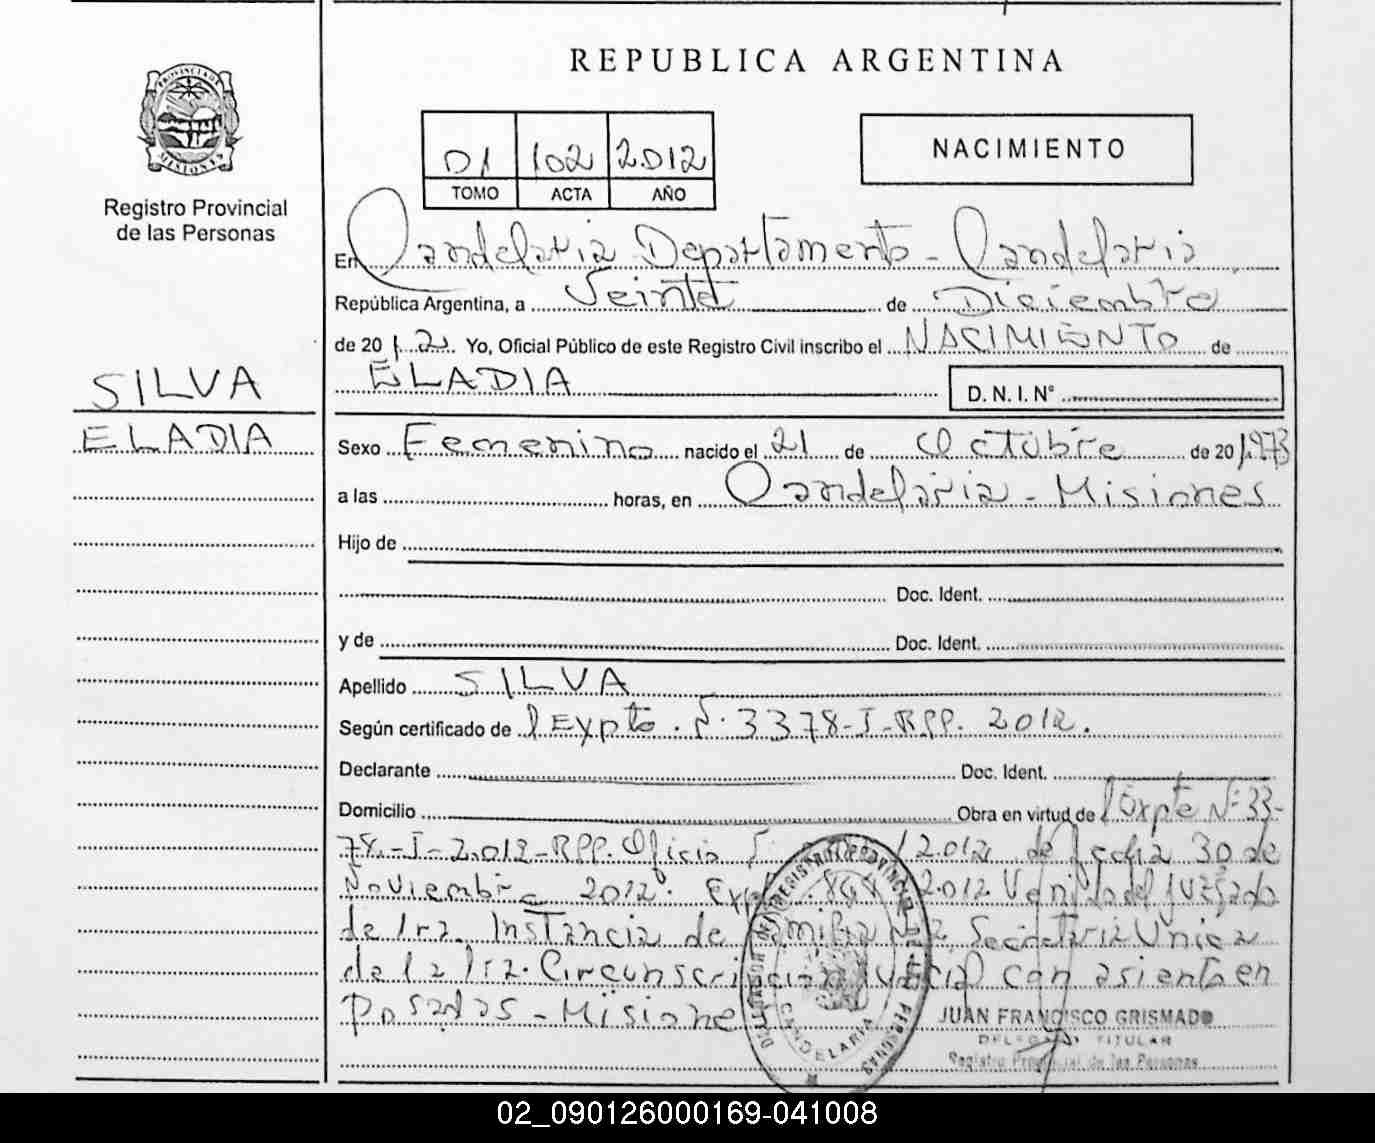 REPUBLICA ARGENTINA
PROVINCIA DE MISIONES
Registro Provincial
de las Personas
01 102 2012
TOMO ACTA AÑO
NACIMIENTO
En Candelaria Departamento - Candelaria
República Argentina, a Veinte de Diciembre
de 2012 Yo, Oficial Público de este Registro Civil inscribo el NACIMIENTO de
ELADIA D.N.I. N°
SILVA
ELADIA
Sexo Femenino nacido el 21 de Octubre de 20 1973
a las horas, en Candelaria - Misiones
Hijo de
Doc. Ident.
y de Doc. Ident.
Apellido SILVA
Según certificado de Expte. N° 3378-I-RPP. 2012.
Declarante Doc. Ident.
Domicilio Obra en virtud de Expte N° 33-
78-I-2012-RPP. Oficio N° /2012 de fecha 30 de
Noviembre 2012. 2012. Venida del Juzgado
de 1ra. Instancia de Familia N° 2 Secretaria Unica
de la 1ra. Circunscripcion Judicial con asiento en
Posadas - Misiones
DELEGACION DEL REGISTRO PROVINCIAL DE LAS PERSONAS
CANDELARIA
JUAN FRANCISCO GRISMADO
DELEGADO TITULAR
Registro Provincial de las Personas
02_090126000169-041008